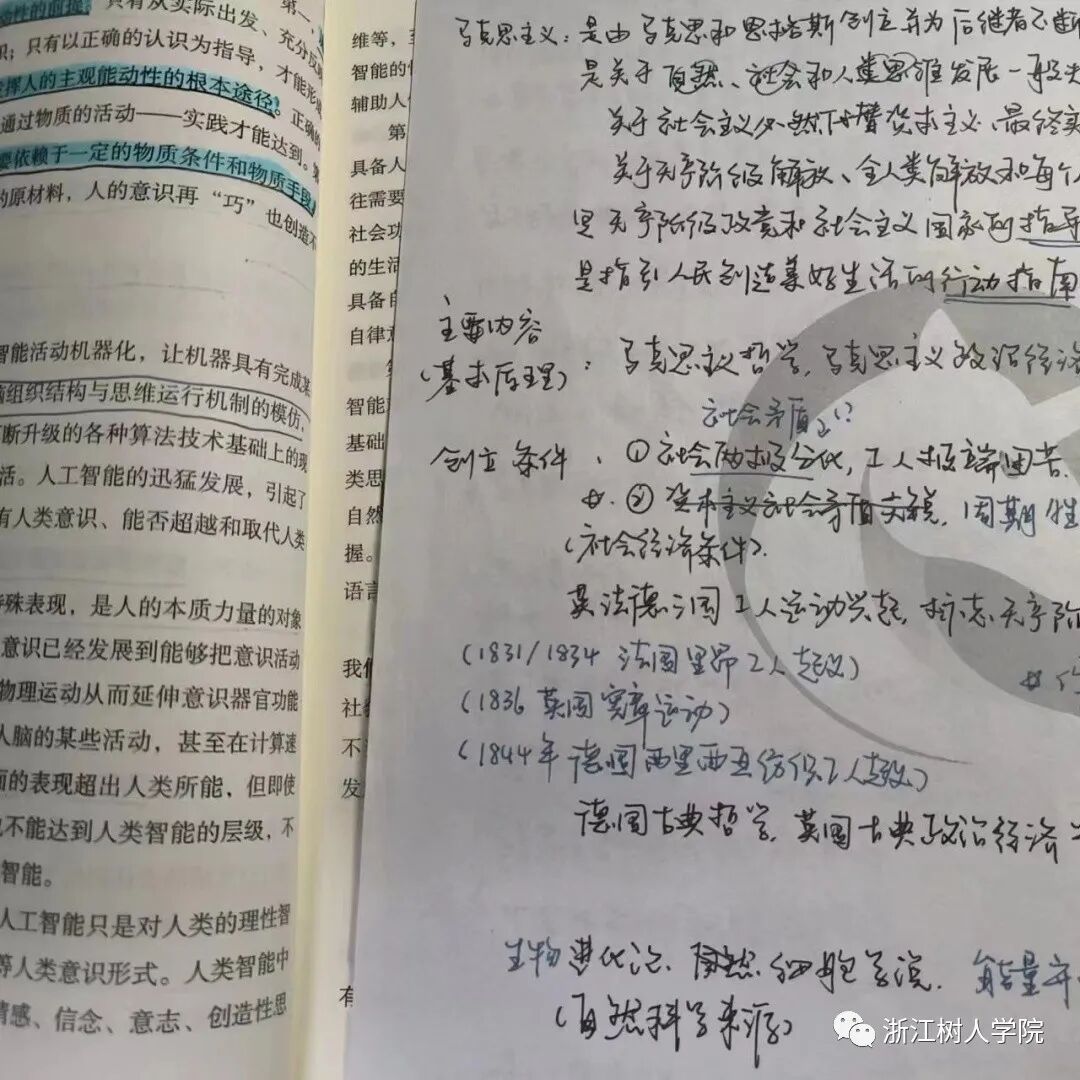 性的前提。只有从实际出发、充分反映
识；只有以正确的认识为指导，才能形
发挥人的主观能动性的根本途径。正确的
通过物质的活动——实践才能达到。第
要依赖于一定的物质条件和物质手段
的原材料，人的意识再“巧”也创造不
智能活动机器化，让机器具有完成某
脑组织结构与思维运行机制的模仿，
不断升级的各种算法技术基础上的现
活。人工智能的迅猛发展，引起了
有人类意识、能否超越和取代人类
特殊表现，是人的本质力量的对象
意识已经发展到能够把意识活动
物理运动从而延伸意识器官功能
人脑的某些活动，甚至在计算速
面的表现超出人类所能，但即使
也不能达到人类智能的层级，不
智能。
人工智能只是对人类的理性智
等人类意识形式。人类智能中
情感、信念、意志、创造性思
第一，
维等，至
智能的
辅助人
第
具备人
往需要
社会功
的生活
具备自
自律意
智能
基础
类思
自然
握。
语言
我们
社
不
发
有
马克思主义：是由马克思和恩格斯创立并为后继者不断
是关于自然、社会和人类思维发展一般
关于社会主义必然代替资本主义、最终实
关于无产阶级解放、全人类解放和每个人
是无产阶级政党和社会主义国家的指导
是指引人民创造美好生活的行动指南
主要内容
（基本原理）：马克思主义哲学，马克思主义政治经济
社会矛盾
创立条件：①社会两极分化，工人极端困苦
②资本主义社会矛盾尖锐，周期性
（社会经济条件）．
英法德三国工人运动兴起，标志无产阶
（1831/1834 法国里昂工人起义）
（1836 英国宪章运动）
（1844年 德国西里西亚纺织工人起义）
德国古典哲学，英国古典政治经济
生物进化论、细胞学说．能量守
（自然科学来源）
浙江树人学院